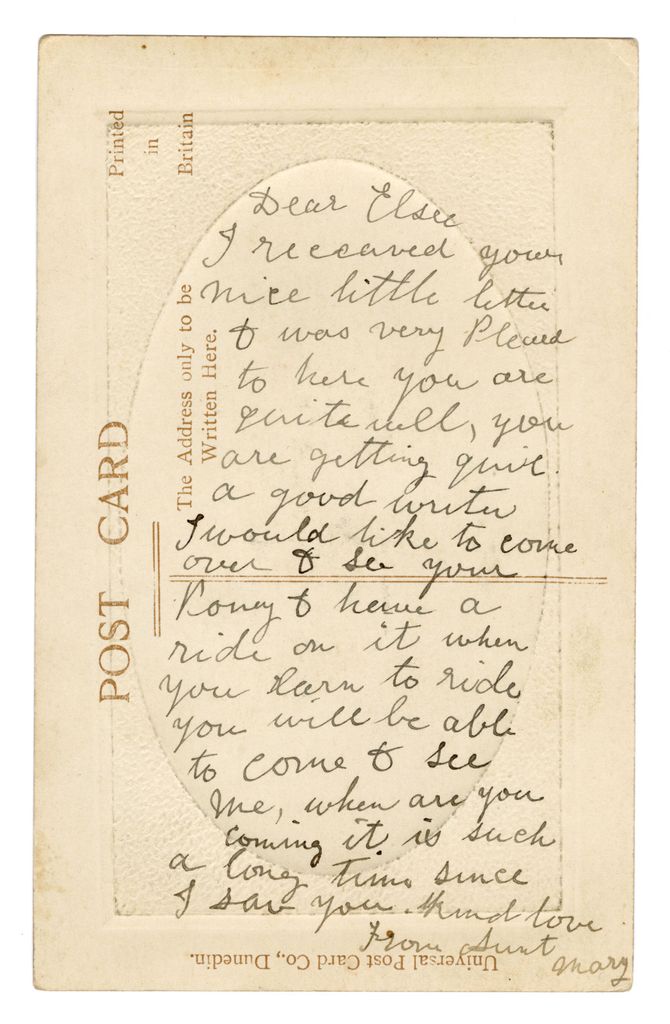 Printed
in
Britain
POST CARD
The Address only to be
Written Here.
Dear Elsee
I receaved your
nice little letter
& was very Pleased
to here you are
quite well, you
are getting quite
a good writer
I would like to come
over & see your
Poney & have a
ride on it when
you Learn to ride
you will be able
to come & see
me, when are you
coming it is such
a long time since
I saw you. Kind love
From Aunt
Mary
Universal Post Card Co., Dunedin.